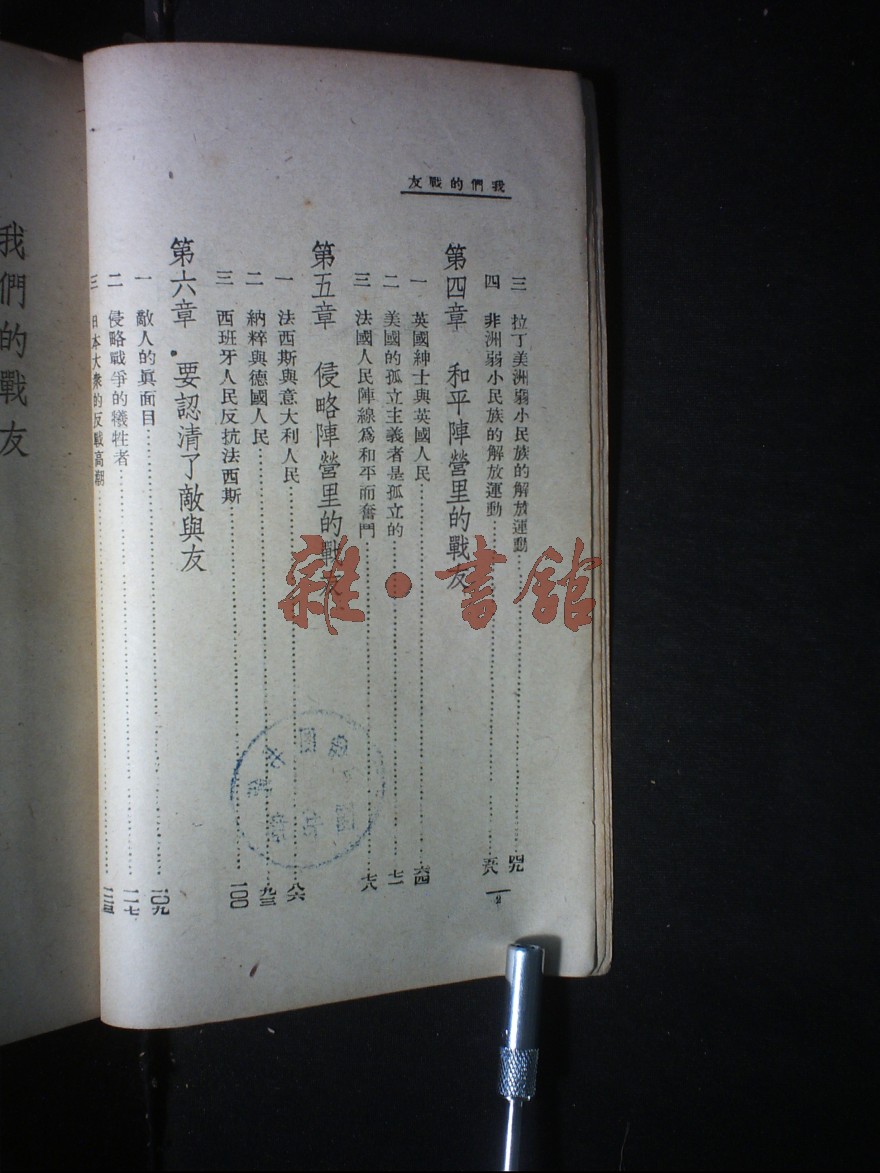 我們的戰友
三 拉丁美洲弱小民族的解放運動……咒
四 非洲弱小民族的解放運動……
第四章 和平陣營里的戰友
一 英國紳士與英國人民……六四
二 美國的孤立主義者是孤立的……七一
三 法國人民陣線爲和平而奮鬥……七八
第五章 侵略陣營里的戰友
一 法西斯與意大利人民……八六
二 納粹與德國人民……九三
三 西班牙人民反抗法西斯……一〇〇
第六章 要認清了敵與友
一 敵人的眞面目……一〇九
二 侵略戰爭的犧牲者……一一七
三 日本大衆的反戰高潮……
2
我們的戰友
雜·書館